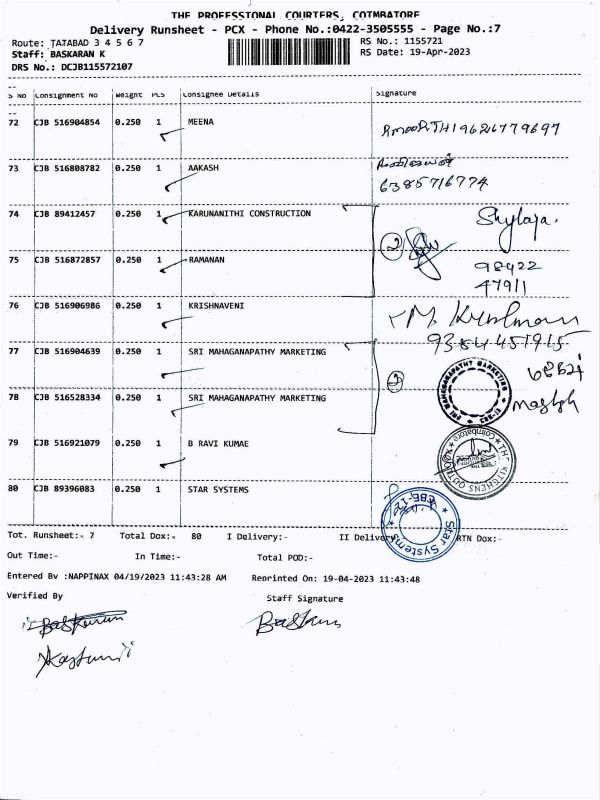 THE PROFESSIONAL COURIERS, COIMBATORE
Delivery Runsheet - PCX - Phone No.:0422-3505555 - Page No.:7
Route: TATABAD 3 4 5 6 7 RS No.: 1155721
Staff: BASKARAN K RS Date: 19-Apr-2023
DRS No.: DCJB115572107
S No Consignment No Weight PCS Consignee Details Signature
72 CJB 516904854 0.250 1 MEENA
73 CJB 516808782 0.250 1 AAKASH
6385716774
74 CJB 89412457 0.250 1 KARUNANITHI CONSTRUCTION
2 Shylaja.
75 CJB 516872857 0.250 1 RAMANAN 98422
47911
76 CJB 516906986 0.250 1 KRISHNAVENI
9384451915
77 CJB 516904639 0.250 1 SRI MAHAGANAPATHY MARKETING
2 SRI MAHAGANAPATHY MARKETING
78 CJB 516528334 0.250 1 SRI MAHAGANAPATHY MARKETING
79 CJB 516921079 0.250 1 B RAVI KUMAE
THE KITCHENS Coimbatore
80 CJB 89396083 0.250 1 STAR SYSTEMS
Star Systems
Tot. Runsheet:- 7 Total Dox:- 80 I Delivery:- II Delivery RTN Dox:-
Out Time:- In Time:- Total POD:-
Entered By :NAPPINAX 04/19/2023 11:43:28 AM Reprinted On: 19-04-2023 11:43:48
Verified By Staff Signature
Baskaran